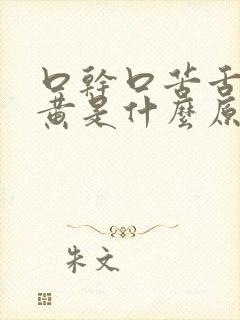 口幹口苦舌
黃是什麼原
朱文